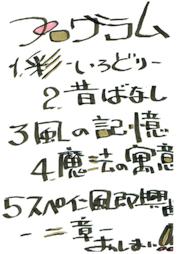 プログラム
1彩-いろどり-
2.昔ばなし
3風の記憶
4.魔法の寓意
5スペイン風即興曲
-二章-
おしまい!!